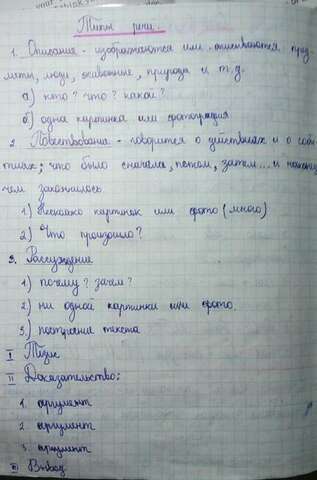 Типы речи.
1. Описание - изображаются или описываются пред-
меты, люди, животные, природа и т.д.
а) кто? что? какой?
б) одна картинка или фотография
2. Повествование - говорится о действиях и о собы-
тиях; что было сначала, потом, затем... и наконец
чем закончилось
1) Несколько картинок или фото (много)
2) Что произошло?
3. Рассуждение
1) почему? зачем?
2) ни одной картинки или фото.
3.) построение текста
I Тезис
II Доказательство:
1. аргумент
2. аргумент
3. аргумент
III Вывод